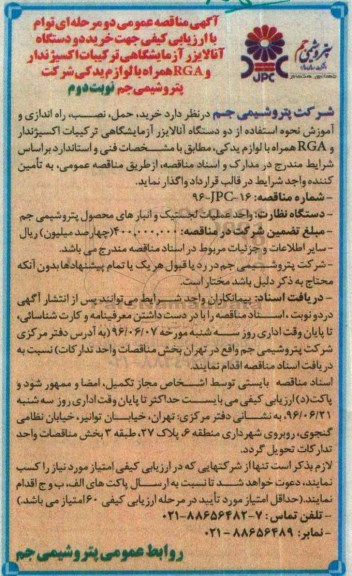 آگهی مناقصه عمومی دو مرحله ای توام
با ارزیابی کیفی جهت خرید دو دستگاه
آنالایزر آزمایشگاهی ترکیبات اکسیژندار
و RGA همراه با لوازم یدکی شرکت
پتروشیمی جم نوبت دوم
پتروشیمی جم
JPC
شرکت پتروشیمی جم در نظر دارد خرید، حمل، نصب، راه اندازی و
آموزش نحوه استفاده از دو دستگاه آنالایزر آزمایشگاهی ترکیبات اکسیژندار
و RGA همراه با لوازم یدکی، مطابق با مشخصات فنی و استاندارد براساس
شرایط مندرج در مدارک و اسناد مناقصه، ازطریق مناقصه عمومی، به تأمین
کننده واجد شرایط در قالب قرارداد واگذار نماید.
- شماره مناقصه: ۱۶-JPC-۹۶
- دستگاه نظارت: واحد عملیات لجستیک و انبار های محصول پتروشیمی جم
- مبلغ تضمین شرکت در مناقصه: ۴۰۰,۰۰۰,۰۰۰ (چهارصد میلیون) ریال
- سایر اطلاعات و جزئیات مربوط در اسناد مناقصه مندرج می باشد.
- شرکت پتروشیمی جم در رد یا قبول هر یک یا تمام پیشنهادها بدون آنکه
محتاج به ذکر دلیل باشد مختار است.
- دریافت اسناد: پیمانکاران واجد شرایط می توانند پس از انتشار آگهی
در دو نوبت، اسناد مناقصه را با در دست داشتن معرفینامه و کارت شناسائی،
تا پایان وقت اداری روز سه شنبه مورخه ۹۶/۰۶/۰۷ به آدرس دفتر مرکزی
شرکت پتروشیمی جم واقع در تهران بخش مناقصات واحد تدارکات) نسبت به
دریافت اسناد مناقصه اقدام نمایند.
اسناد مناقصه بایستی توسط اشخاص مجاز تکمیل، امضا و ممهور شود و
پاکت(د) ارزیابی کیفی می بایست حداکثر تا پایان وقت اداری روز سه شنبه
۹۶/۰۶/۲۱، به نشانی دفتر مرکزی: تهران، خیابان توانیر، خیابان نظامی
گنجوی، روبروی شهرداری منطقه ۶، پلاک ۲۷، طبقه ۳ بخش مناقصات واحد
تدارکات تحویل گردد.
لازم بذکر است تنها از شرکتهایی که در ارزیابی کیفی امتیاز مورد نیاز را کسب
نمایند، دعوت خواهد شد تا نسبت به ارسال پاکت های الف، ب و ج اقدام
نمایند. (حداقل امتیاز مورد تأیید در مرحله ارزیابی کیفی ۶۰ امتیاز می باشد.)
- تلفن تماس: ۷-۸۸۶۵۶۴۸۲-۰۲۱
- نمابر: ۸۸۶۵۶۴۸۹-۰۲۱
روابط عمومی پتروشیمی جم